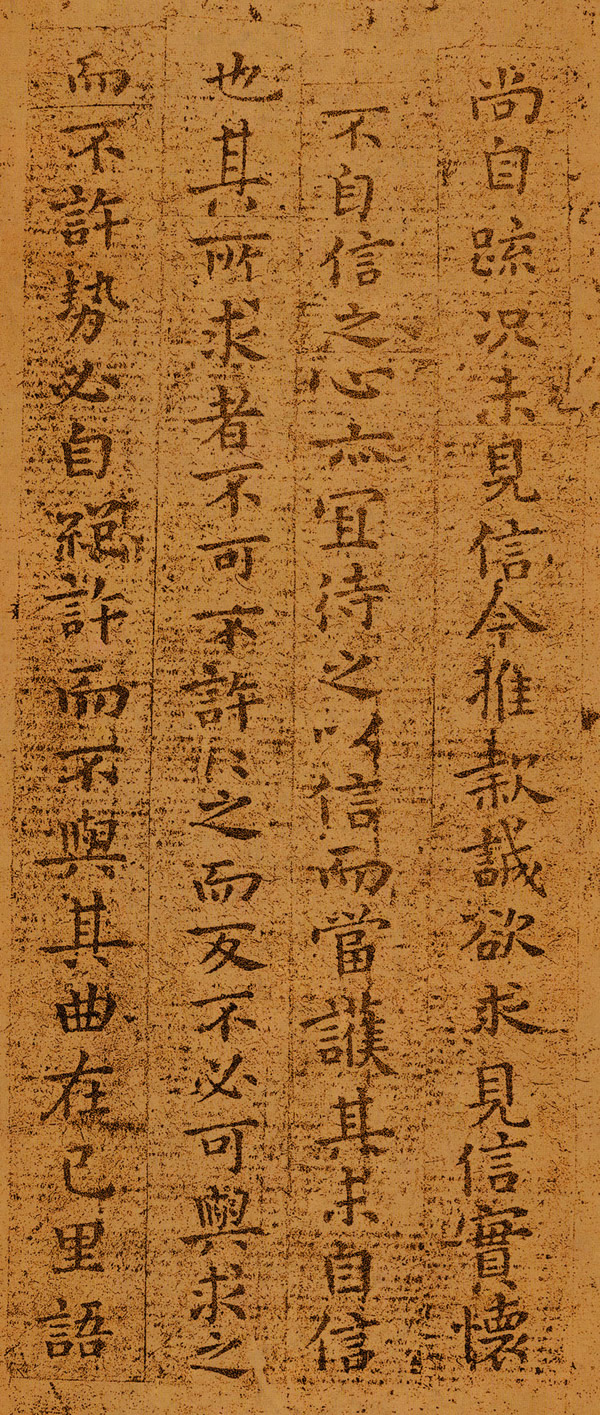 尚自踈况未見信今推款誠欲求見信實懷
不自信之心亦宜待之以信而當護其未自信
也其所求者不可不許〻之而反不必可與求之
而不許勢必自絕許而不與其曲在己里語